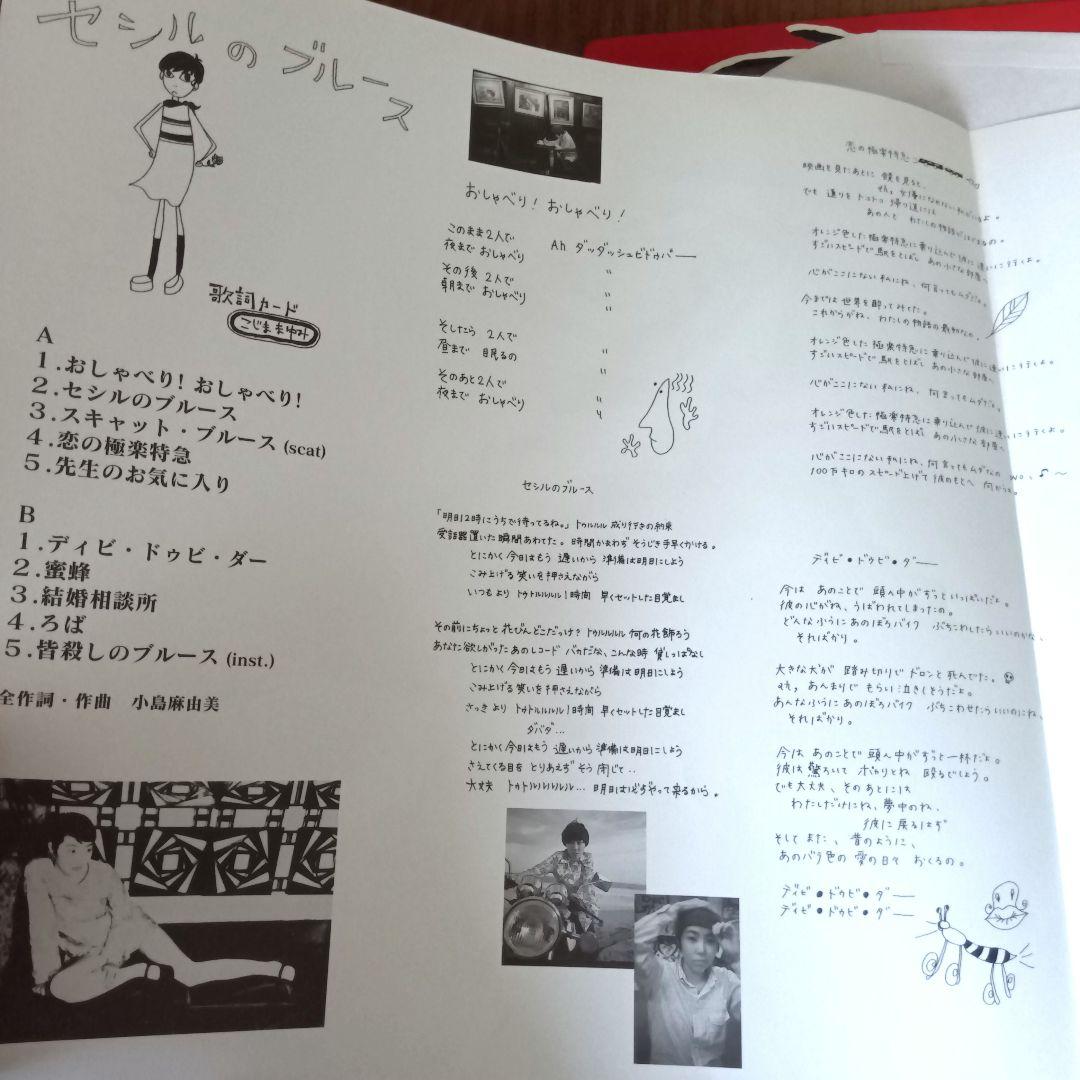 セシルのブルース
歌詞カード
こじままゆみ
A
1.おしゃべり! おしゃべり!
2.セシルのブルース
3.スキャット・ブルース (scat)
4.恋の極楽特急
5.先生のお気に入り
B
1.ディビ・ドゥビ・ダー
2.蜜蜂
3.結婚相談所
4.ろば
5.皆殺しのブルース (inst.)
全作詞・作曲 小島麻由美
おしゃべり! おしゃべり!
このまま2人で Ah ダッダッシュビドゥバー
夜まで おしゃべり 〃
その後 2人で 〃
朝まで おしゃべり 〃
そしたら 2人で 〃
昼まで 眠るの 〃
そのあと2人で 〃
夜まで おしゃべり 〃
セシルのブルース
「明日2時にうちで待ってるね。」 トゥルルル 成り行きの約束
受話器置いた瞬間あわてた。時間かまわず そうじき手早くかける。
とにかく今日はもう 遅いから 準備は明日にしよう
こみ上げる 笑いを押さえながら
いつも より トゥトルルルル!1時間 早くセットした目覚まし
その前にちょっと 花びんどこだっけ? トゥルルルル 何の花飾ろう
あなた欲しがった あのレコード バカだな、こんな時 貸しっぱなし
とにかく 今日はもう 遅いから 準備は明日にしよう
こみ上げる 笑いを押さえながら
さっき より トゥトルルルル!1時間 早くセットした目覚まし
ダバダ...
とにかく 今日はもう 遅いから 準備は明日にしよう
さえてくる目を とりあえず そう 閉じて..
大丈夫 トゥトルルルルル... 明日は必ずやって来るから。
恋の極楽特急
映画を見たあとに 鏡を見ると、
でも 通りを トコトコ 帰り道には
あの人と わたしの物語が はじまるの。
オレンジ色した極楽特急に乗り込んで 彼に逢いに行くよ。
すごいスピードで 駅をとばし あの小さな部屋へ
心がここにない 私にね、何言ってもムダだよ。
今までは 世界を酔ってみてた。
これからがね、わたしの物語の最初なの。
オレンジ色した 極楽特急に 乗り込んで 彼に逢いに行くよ。
すごいスピードで 駅をとばし あの小さな部屋へ
心がここにない 私にね、何言ってもムダだよ。
オレンジ色した極楽特急に乗り込んで 彼に逢いに行くよ。
すごいスピードで 駅をとばし あの小さな部屋へ
心がここにない 私にね、何言ってもムダなの wo、♪〜
100万キロのスピード上げて 彼のもとへ 向かうよ。
ディビ●ドゥビ●ダー
今は あのことで 頭ん中がずっといっぱいだよ。
彼の心がね、うばわれてしまったの。
どんなふうに あのぼろバイク ぶちこわしたらいいのかな、
そればかり。
大きな犬が 踏み切りで ドロンと 死んでた。
あんまりで もらい泣きしそうだよ。
あんなふうに あのぼろバイク ぶちこわせたらいいのにね、
そればかり。
今は あのことで 頭ん中がずっと一杯だよ。
彼は 驚ろいて ポカリとね 殴るでしょう。
でも大丈夫、そのあとには
わたしだけにね、夢中のね、
彼に戻るはず
そして また、昔のように、
あのバラ色の 愛の日々 おくるの。
ディビ●ドゥビ●ダー
ディビ●ドゥビ●ダー